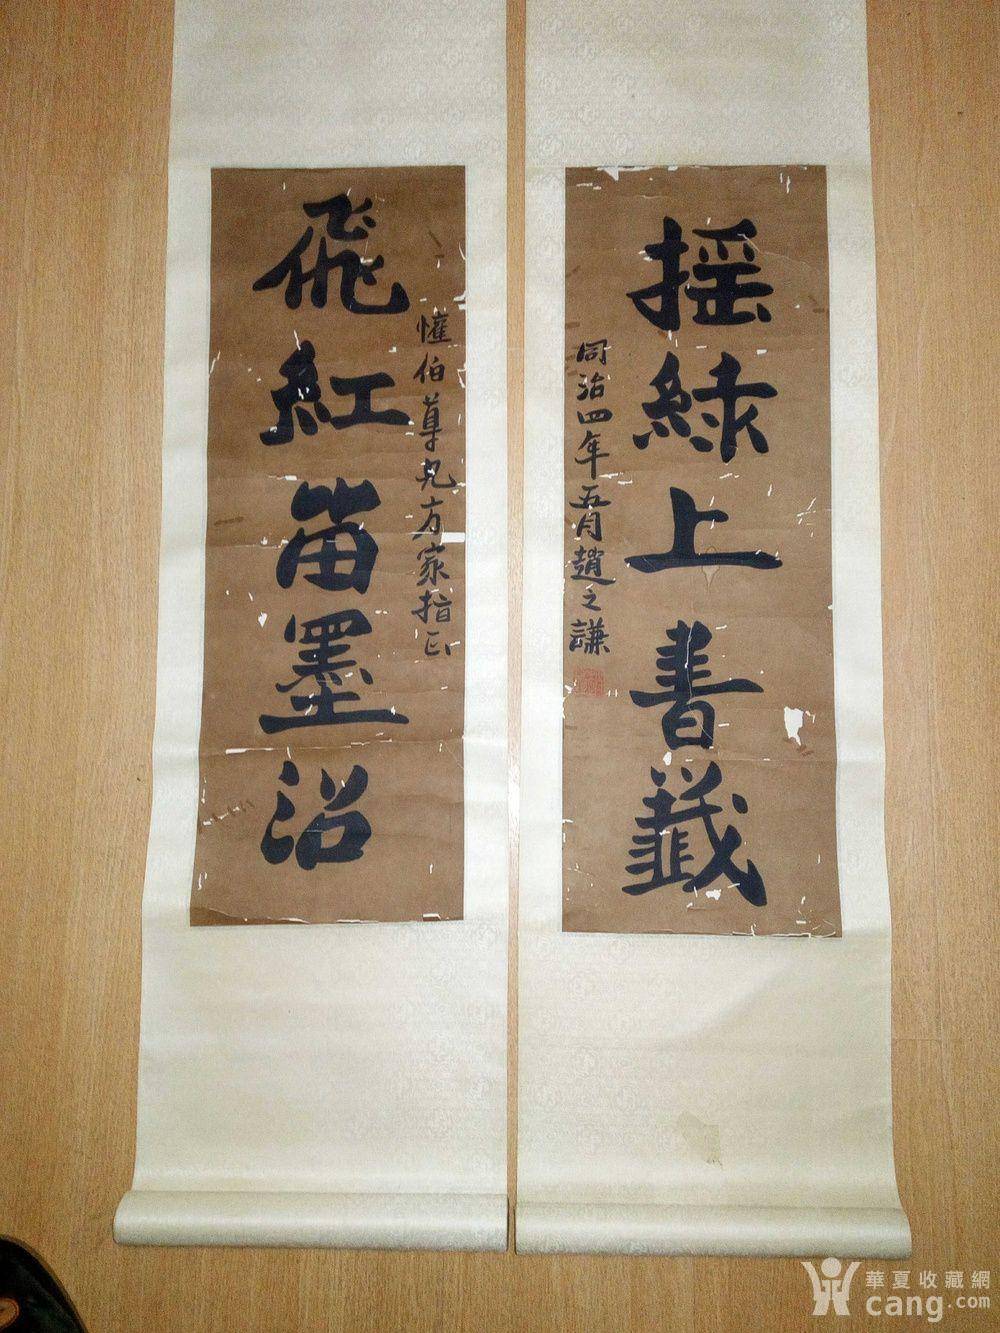 懽伯尊兄方家指正
飛紅留墨沼
摇綠上書籤
同治四年五月趙之謙
華夏收藏網
cang.com